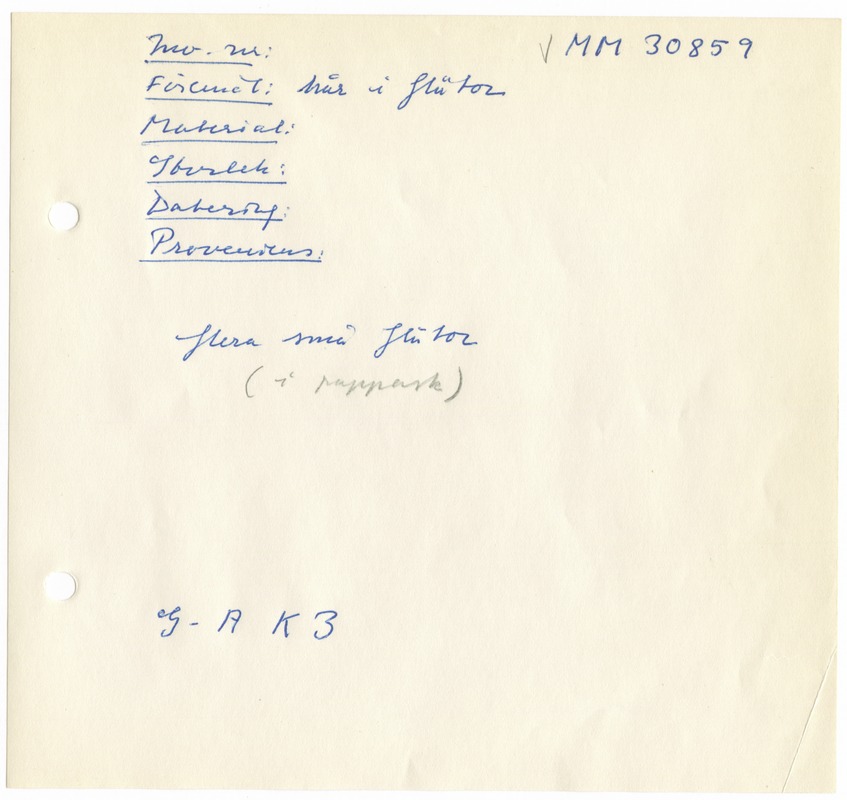 Inv. nr: √ MM 30859
Föremål: hår i flätor
Material:
Storlek:
Datering:
Proveniens:
flera små flätor
(i pappask)
G-A K3